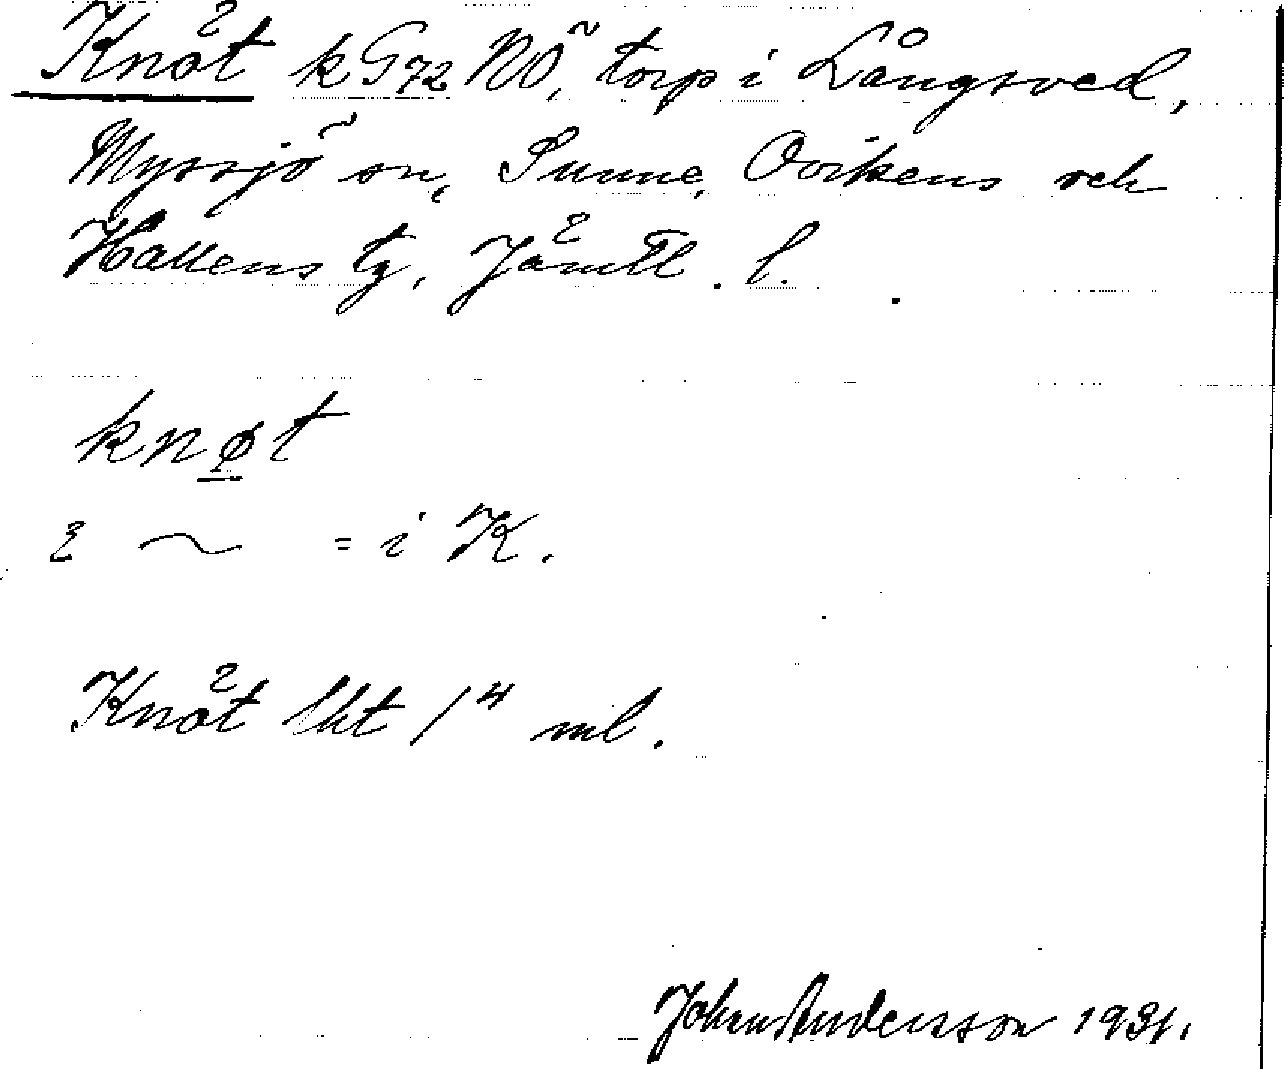 Knät kG72NÖ, torp i Långsved,
Myssjö sn, Sunne, Ovikens och
Hallens tg, Jämtl. l.
knøt
ε ~ = i K.
Knät lkt /4 ml.
Johan Andersson 1931.